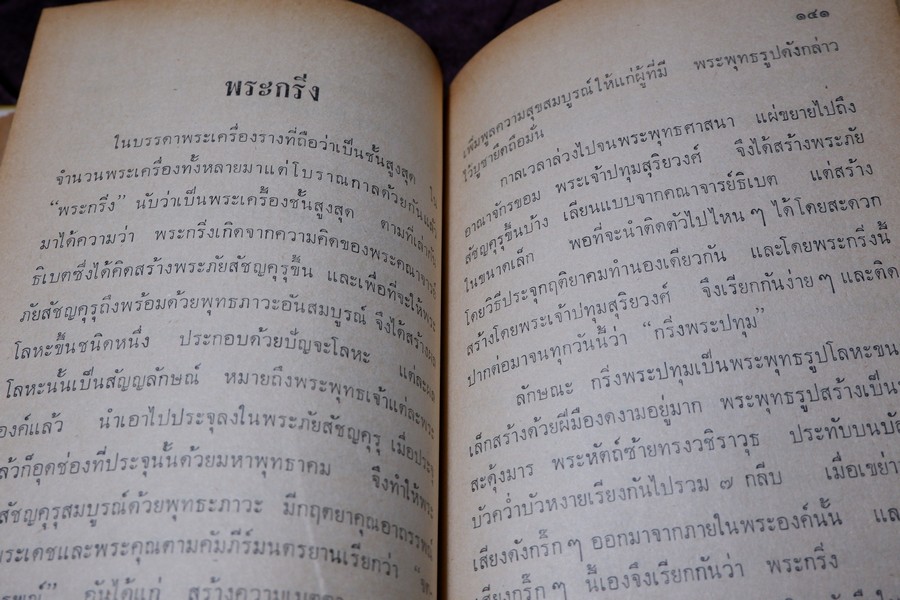 พระกริ่ง
ในบรรดาพระเครื่องรางที่ถือว่าเป็นชั้นสูงสุด ใน
จำนวนพระเครื่องทั้งหลายมาแต่โบราณกาลด้วยกันแล้ว
“พระกริ่ง” นับว่าเป็นพระเครื่องชั้นสูงสุด ตามที่เล่ากัน
มาได้ความว่า พระกริ่งเกิดจากความคิดของพระคณาจารย์
ธิเบตซึ่งได้คิดสร้างพระภัยสัชญคุรุขึ้น และเพื่อที่จะให้พระ
ภัยสัชญคุรุถึงพร้อมด้วยพุทธภาวะอันสมบูรณ์ จึงได้สร้าง
โลหะขึ้นชนิดหนึ่ง ประกอบด้วยปัญจะโลหะ แต่ละ
โลหะนั้นเป็นสัญญลักษณ์ หมายถึงพระพุทธเจ้าแต่ละพระ
องค์แล้ว นำเอาไปประจุลงในพระภัยสัชญคุรุ เมื่อประจุ
ล้วก็อุดช่องที่ประจุนั้นด้วยมหาพุทธาคม จึงทำให้พระ
สัชญคุรุสมบูรณ์ด้วยพุทธะภาวะ มีกฤตยาคุณอาถรรพณ์
พระเดชและพระคุณตามคัมภีร์มนตรยานเรียกว่า
อันได้แก่ สร้างความเมตตา
๑๔๑
เพิ่มพูลความสุขสมบูรณ์ให้แก่ผู้ที่มี พระพุทธรูปดังกล่าว
ไว้บูชายึดถือมั่น
กาลเวลาล่วงไปจนพระพุทธศาสนา แผ่ขยายไปถึง
อาณาจักรขอม พระเจ้าปทุมสุริยวงศ์ จึงได้สร้างพระภัย
สัชญคุรุขึ้นบ้าง เลียนแบบจากคณาจารย์ธิเบต แต่สร้าง
ในขนาดเล็ก พอที่จะนำติดตัวไปไหนๆ ได้โดยสะดวก
โดยวิธีประจุกฤติยาคมทำนองเดียวกัน และโดยพระกริ่งนี้
สร้างโดยพระเจ้าปทุมสุริยวงศ์ จึงเรียกกันง่ายๆ และติด
ปากต่อมาจนทุกวันนี้ว่า “กริ่งพระปทุม”
ลักษณะ กริ่งพระปทุมเป็นพระพุทธรูปโลหะขน
เล็กสร้างด้วยฝีมืองดงามอยู่มาก พระพุทธรูปสร้างเป็น
สะดุ้งมาร พระหัตถ์ซ้ายทรงวชิราวุธ ประทับบนบัล
บัวคว่ำบัวหงายเรียงกันไปรวม ๗ กลีบ เมื่อเขย่า
เสียงดังกริ๊กๆ ออกมาจากภายในพระองค์นั้น
เสียงกริ๊กๆ นี้เองจึงเรียกกันว่า พระกริ่ง